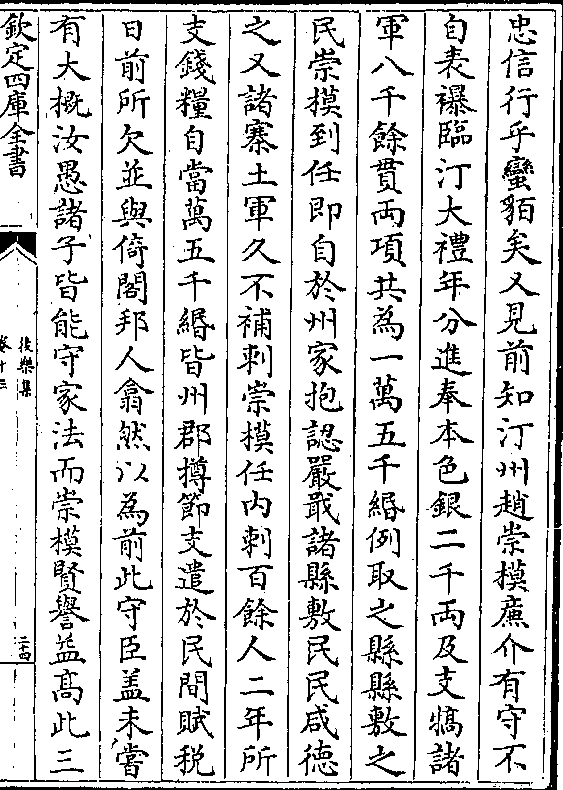 忠信行乎蠻貊矣又見前知汀州趙崇模亷介有守不
自表襮臨汀大禮年分進奉本色銀二千両及支犒諸
軍八千餘貫両項共為一萬五千緡例取之縣縣敷之
民崇模到任即自於州家抱認嚴戢諸縣敷民民咸德
之又諸寨土軍久不補刺崇模任内刺百餘人二年所
支錢糧自當萬五千緡皆州郡撙節支遣於民間賦税
日前所欠並與倚閣邦人翕然以為前此守臣盖未嘗
有大概汝愚諸子皆能守家法而崇模賢譽益髙此三
欽定四庫全書
後樂集
卷十三
二十四